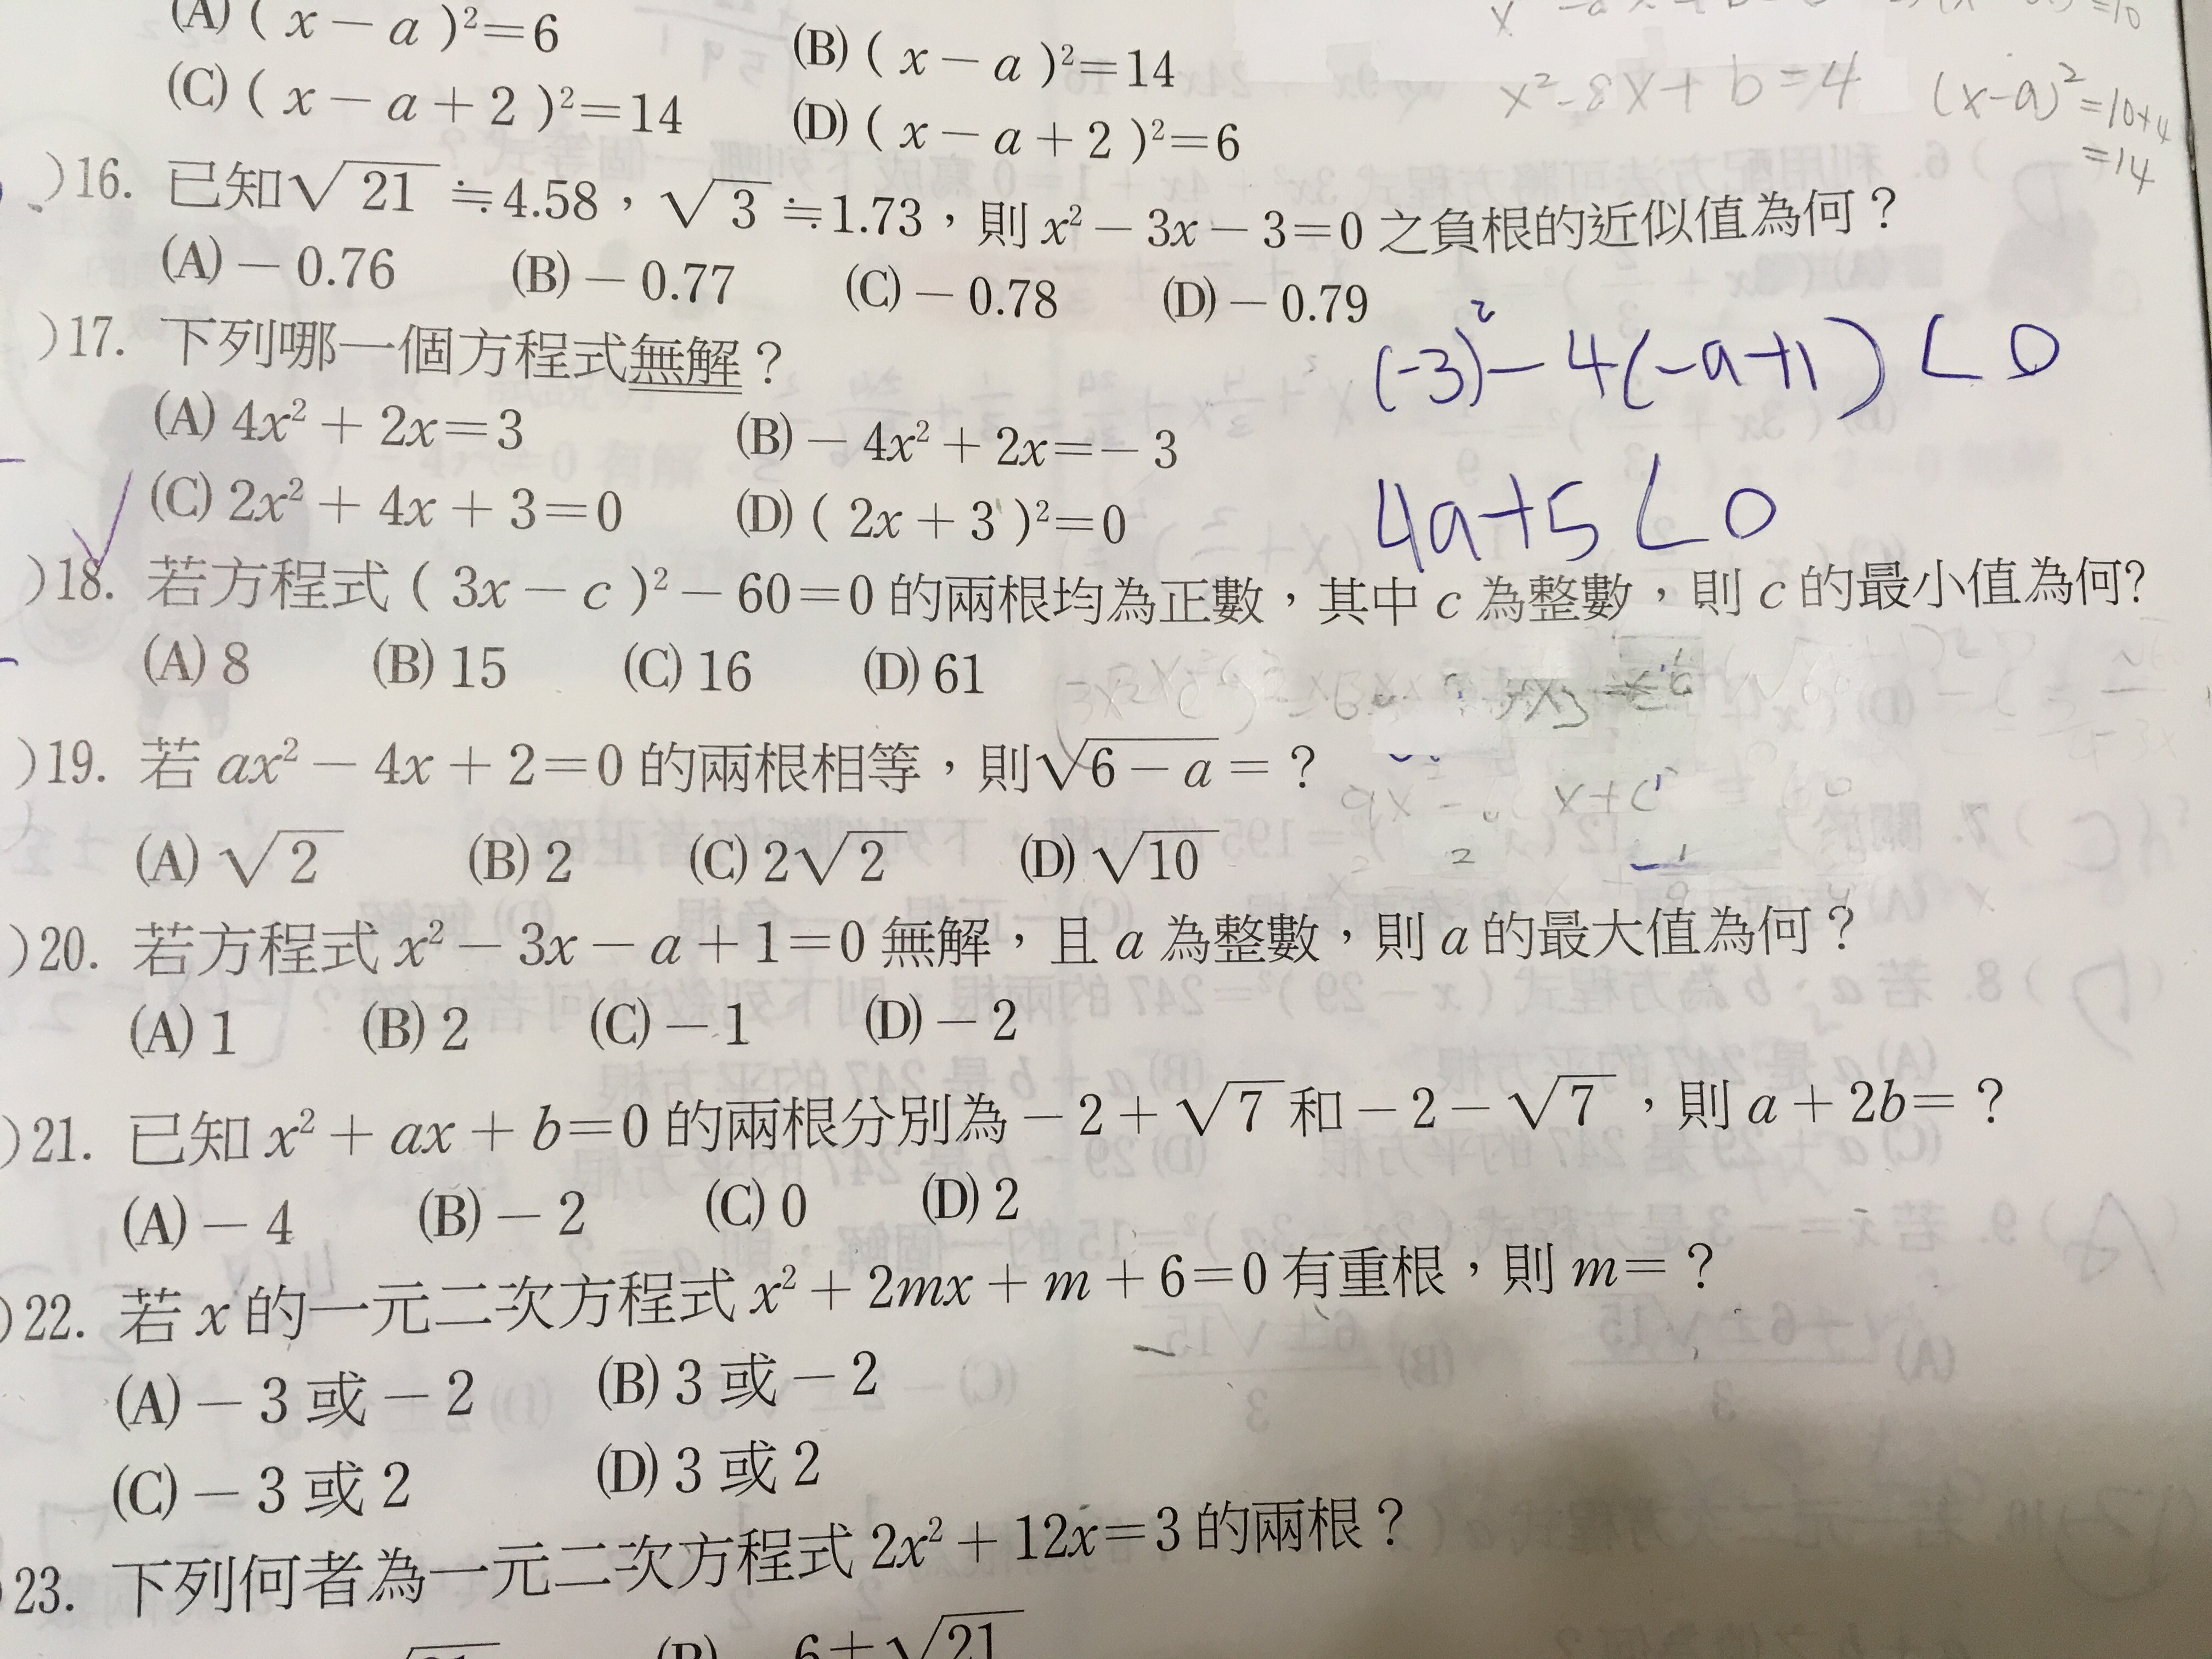 (A) ( x − a )²=6
(B) ( x − a )²=14
(C) ( x − a + 2 )²=14
(D) ( x − a + 2 )²=6
x²-8x+b=4
(x-a)²=10+4
=14
)16. 已知√21≒4.58，√3≒1.73，則 x² − 3x − 3=0 之負根的近似值為何？
(A) − 0.76 (B) − 0.77 (C) − 0.78 (D) − 0.79
)17. 下列哪一個方程式無解？
(A) 4x² + 2x=3 (B) − 4x² + 2x=− 3
(C) 2x² + 4x + 3=0 (D) ( 2x + 3 )²=0
(-3)²-4(-a+1)<0
4a+5<0
)18. 若方程式 ( 3x − c )² − 60=0 的兩根均為正數，其中 c 為整數，則 c 的最小值為何?
(A) 8 (B) 15 (C) 16 (D) 61
)19. 若 ax² − 4x + 2=0 的兩根相等，則√6 − a = ？
(A) √2 (B) 2 (C) 2√2 (D) √10
)20. 若方程式 x² − 3x − a + 1=0 無解，且 a 為整數，則 a 的最大值為何？
(A) 1 (B) 2 (C) − 1 (D) − 2
)21. 已知 x² + ax + b=0 的兩根分別為 − 2 + √7 和 − 2 − √7，則 a + 2b= ？
(A) − 4 (B) − 2 (C) 0 (D) 2
)22. 若 x 的一元二次方程式 x² + 2mx + m + 6=0 有重根，則 m= ？
(A) − 3 或 − 2 (B) 3 或 − 2
(C) − 3 或 2 (D) 3 或 2
23. 下列何者為一元二次方程式 2x² + 12x=3 的兩根？